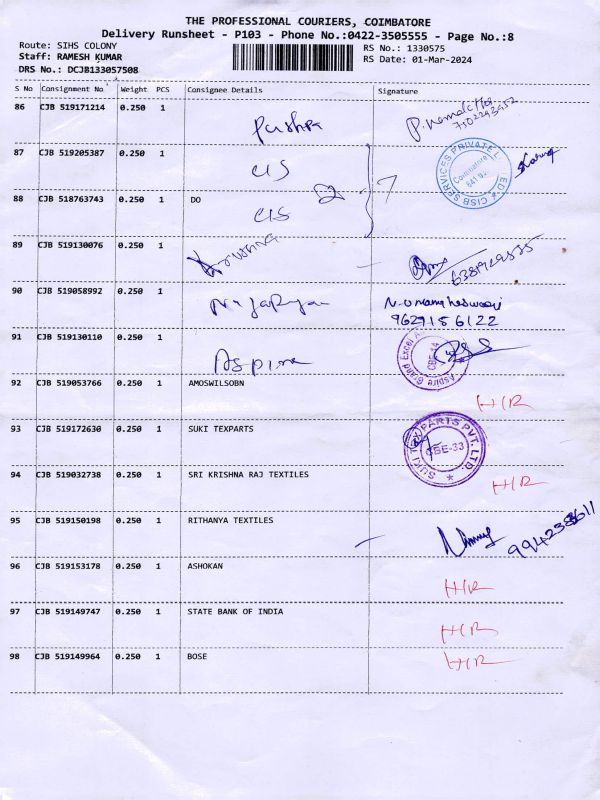 THE PROFESSIONAL COURIERS, COIMBATORE
Delivery Runsheet - P103 - Phone No.:0422-3505555 - Page No.:8
Route: SIHS COLONY
RS No.: 1330575
Staff: RAMESH KUMAR
RS Date: 01-Mar-2024
DRS No.: DCJB133057508
S No Consignment No Weight PCS Consignee Details Signature
86 CJB 519171214 0.250 1 Pushpa
7502243952
87 CJB 519205387 0.250 1 CIS
CISB SERVICES PRIVATE
Coimbatore
88 CJB 518763743 0.250 1 DO
CIS
89 CJB 519130076 0.250 1
90 CJB 519058992 0.250 1 N. Umamaheswari
9629156122
91 CJB 519130110 0.250 1 Aspire
Aspire Grand Excel
CBE-14
92 CJB 519053766 0.250 1 AMOSWILSOBN HR
93 CJB 519172630 0.250 1 SUKI TEXPARTS
SUKI TEX PARTS PVT. LTD.
CBE-33
94 CJB 519032738 0.250 1 SRI KRISHNA RAJ TEXTILES HR
95 CJB 519150198 0.250 1 RITHANYA TEXTILES
96 CJB 519153178 0.250 1 ASHOKAN HR
97 CJB 519149747 0.250 1 STATE BANK OF INDIA HR
98 CJB 519149964 0.250 1 BOSE HR